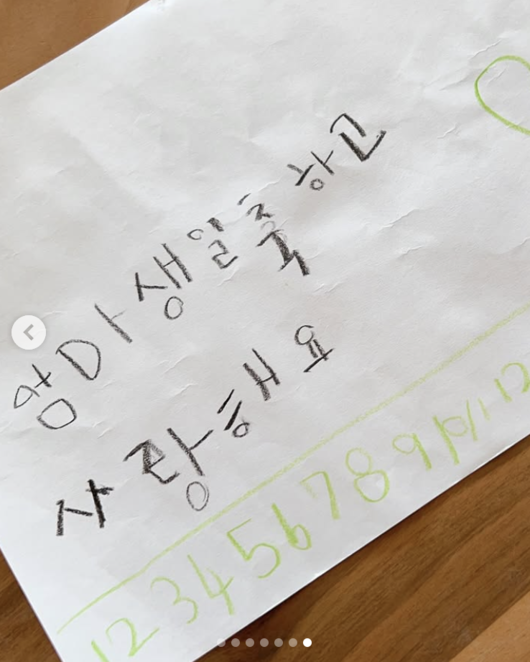 엄마 생일축 하고
사랑해요
1 2 3 4 5 6 7 8 9 10 11 12